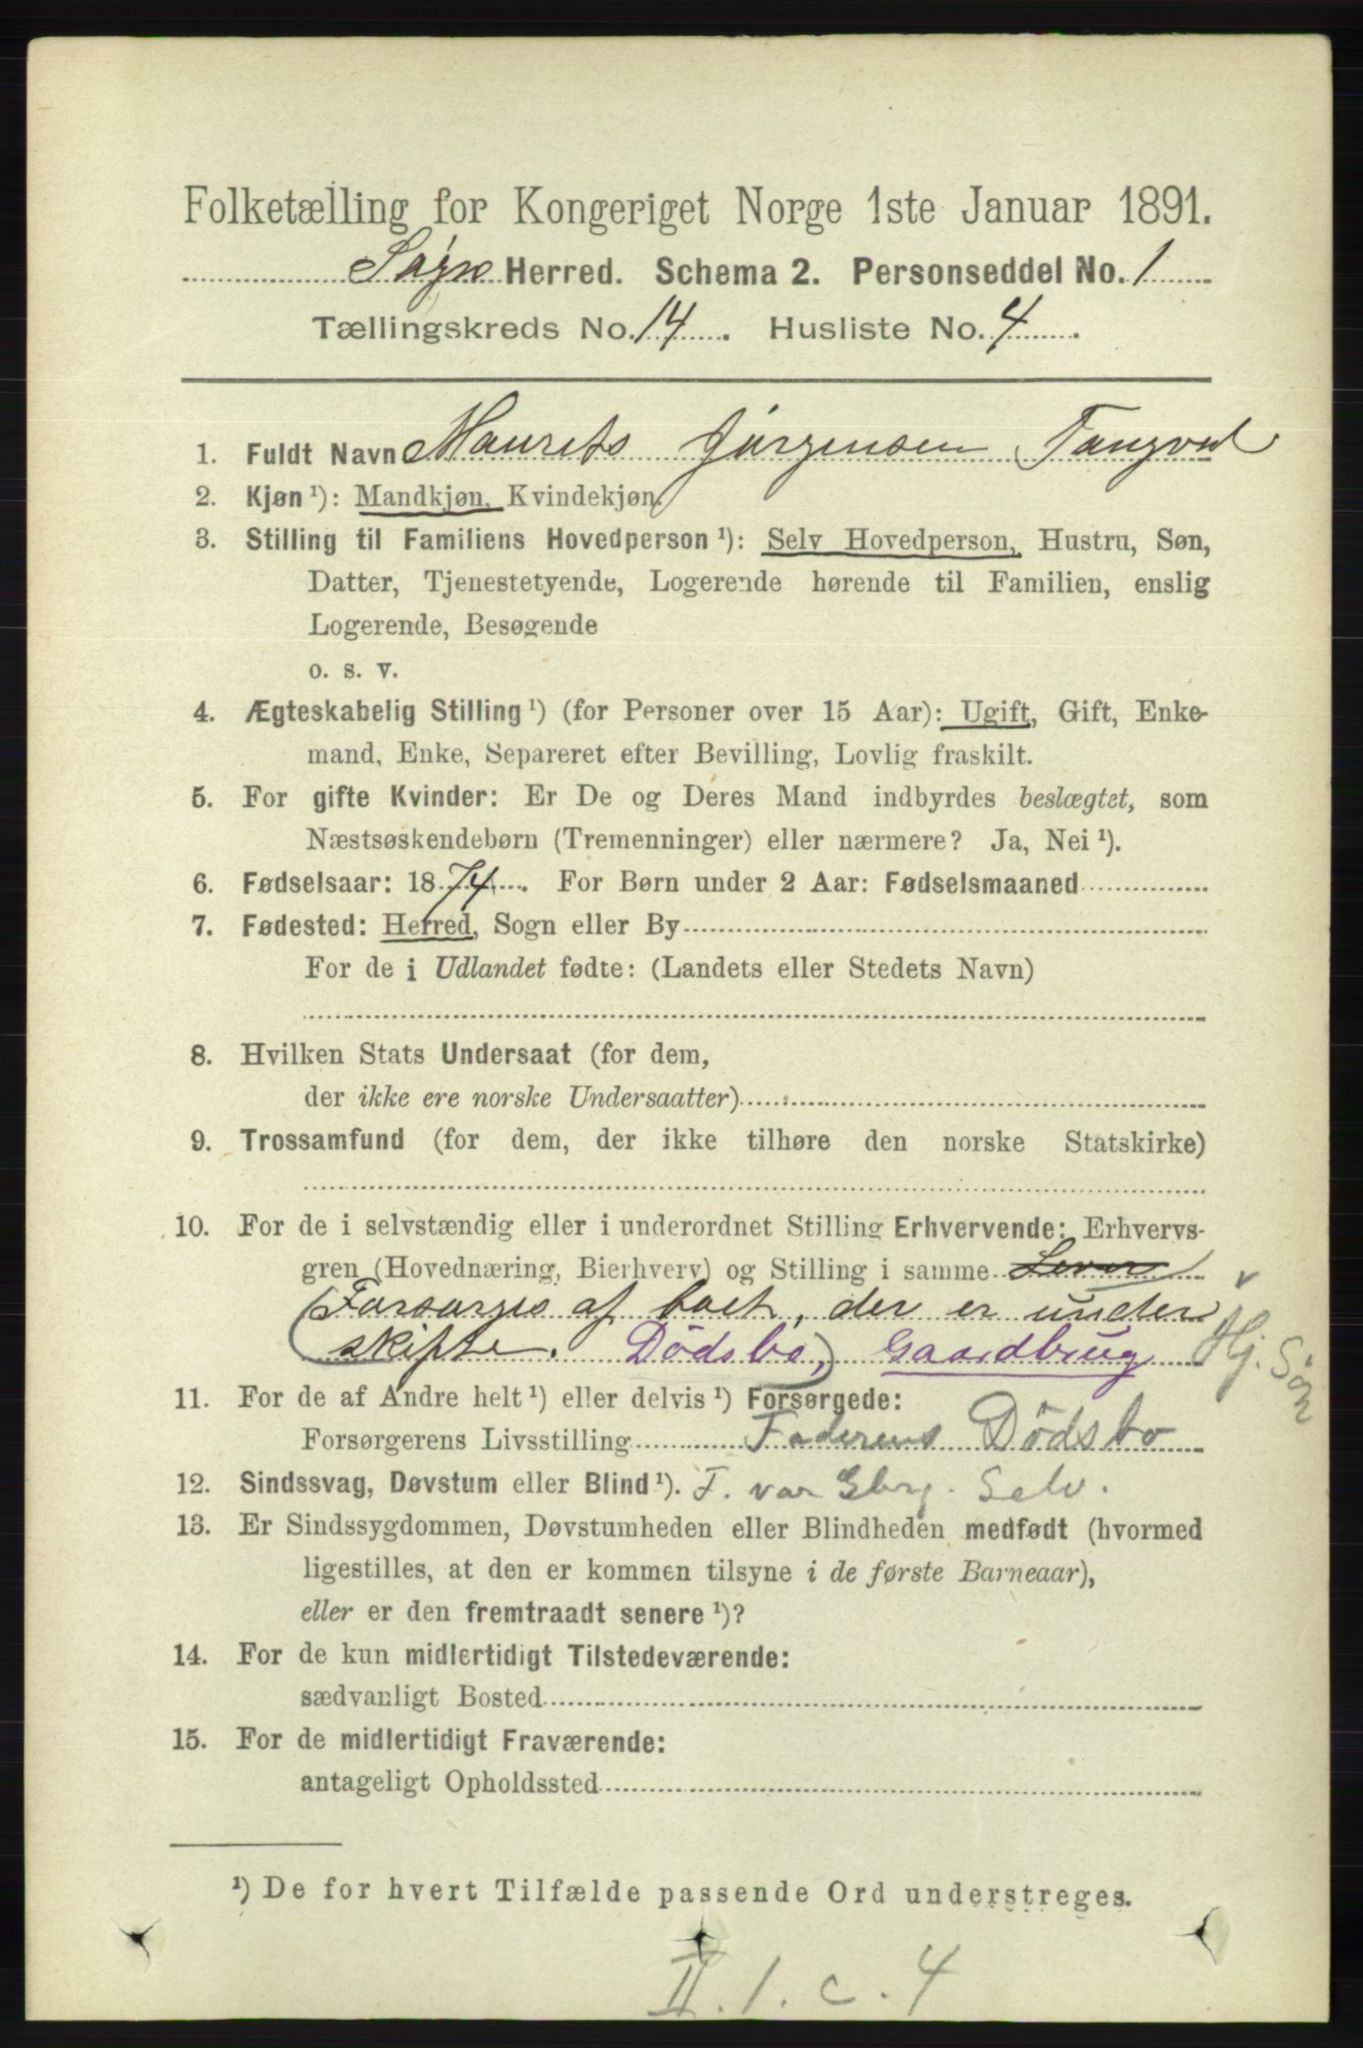 Folketælling for Kongeriget Norge 1ste Januar 1891.
Søgne Herred. Schema 2. Personseddel No. 1
Tællingskreds No. 14. Husliste No. 4.
1. Fuldt Navn Maurets Jørgensen Tangvel
2. Kjøn ¹): Mandkjøn, Kvindekjøn.
3. Stilling til Familiens Hovedperson ¹): Selv Hovedperson, Hustru, Søn,
Datter, Tjenestetyende, Logerende hørende til Familien, enslig
Logerende, Besøgende
o. s. v.
4. Ægteskabelig Stilling ¹) (for Personer over 15 Aar): Ugift, Gift, Enke-
mand, Enke, Separeret efter Bevilling, Lovlig fraskilt.
5. For gifte Kvinder: Er De og Deres Mand indbyrdes beslægtet, som
Næstsøskendebørn (Tremenninger) eller nærmere? Ja, Nei ¹).
6. Fødselsaar: 1874. For Børn under 2 Aar: Fødselsmaaned
7. Fødested: Herred, Sogn eller By
For de i Udlandet fødte: (Landets eller Stedets Navn)
8. Hvilken Stats Undersaat (for dem,
der ikke ere norske Undersaatter)
9. Trossamfund (for dem, der ikke tilhøre den norske Statskirke)
10. For de i selvstændig eller i underordnet Stilling Erhvervende: Erhvervs-
gren (Hovednæring, Bierhverv) og Stilling i samme Lever
(Forsørges af boet, der er under
skifte. Dödsbo,) Gaardbrug Hj. Sön
11. For de af Andre helt ¹) eller delvis ¹) Forsørgede:
Forsørgerens Livsstilling Faderens Dödsbo
12. Sindssvag, Døvstum eller Blind ¹). F. var Gbrg. Selv.
13. Er Sindssygdommen, Døvstumheden eller Blindheden medfødt (hvormed
ligestilles, at den er kommen tilsyne i de første Barneaar),
eller er den fremtraadt senere ¹)?
14. For de kun midlertidigt Tilstedeværende:
sædvanligt Bosted
15. For de midlertidigt Fraværende:
antageligt Opholdssted
¹) De for hvert Tilfælde passende Ord understreges.
II. 1. c. 4